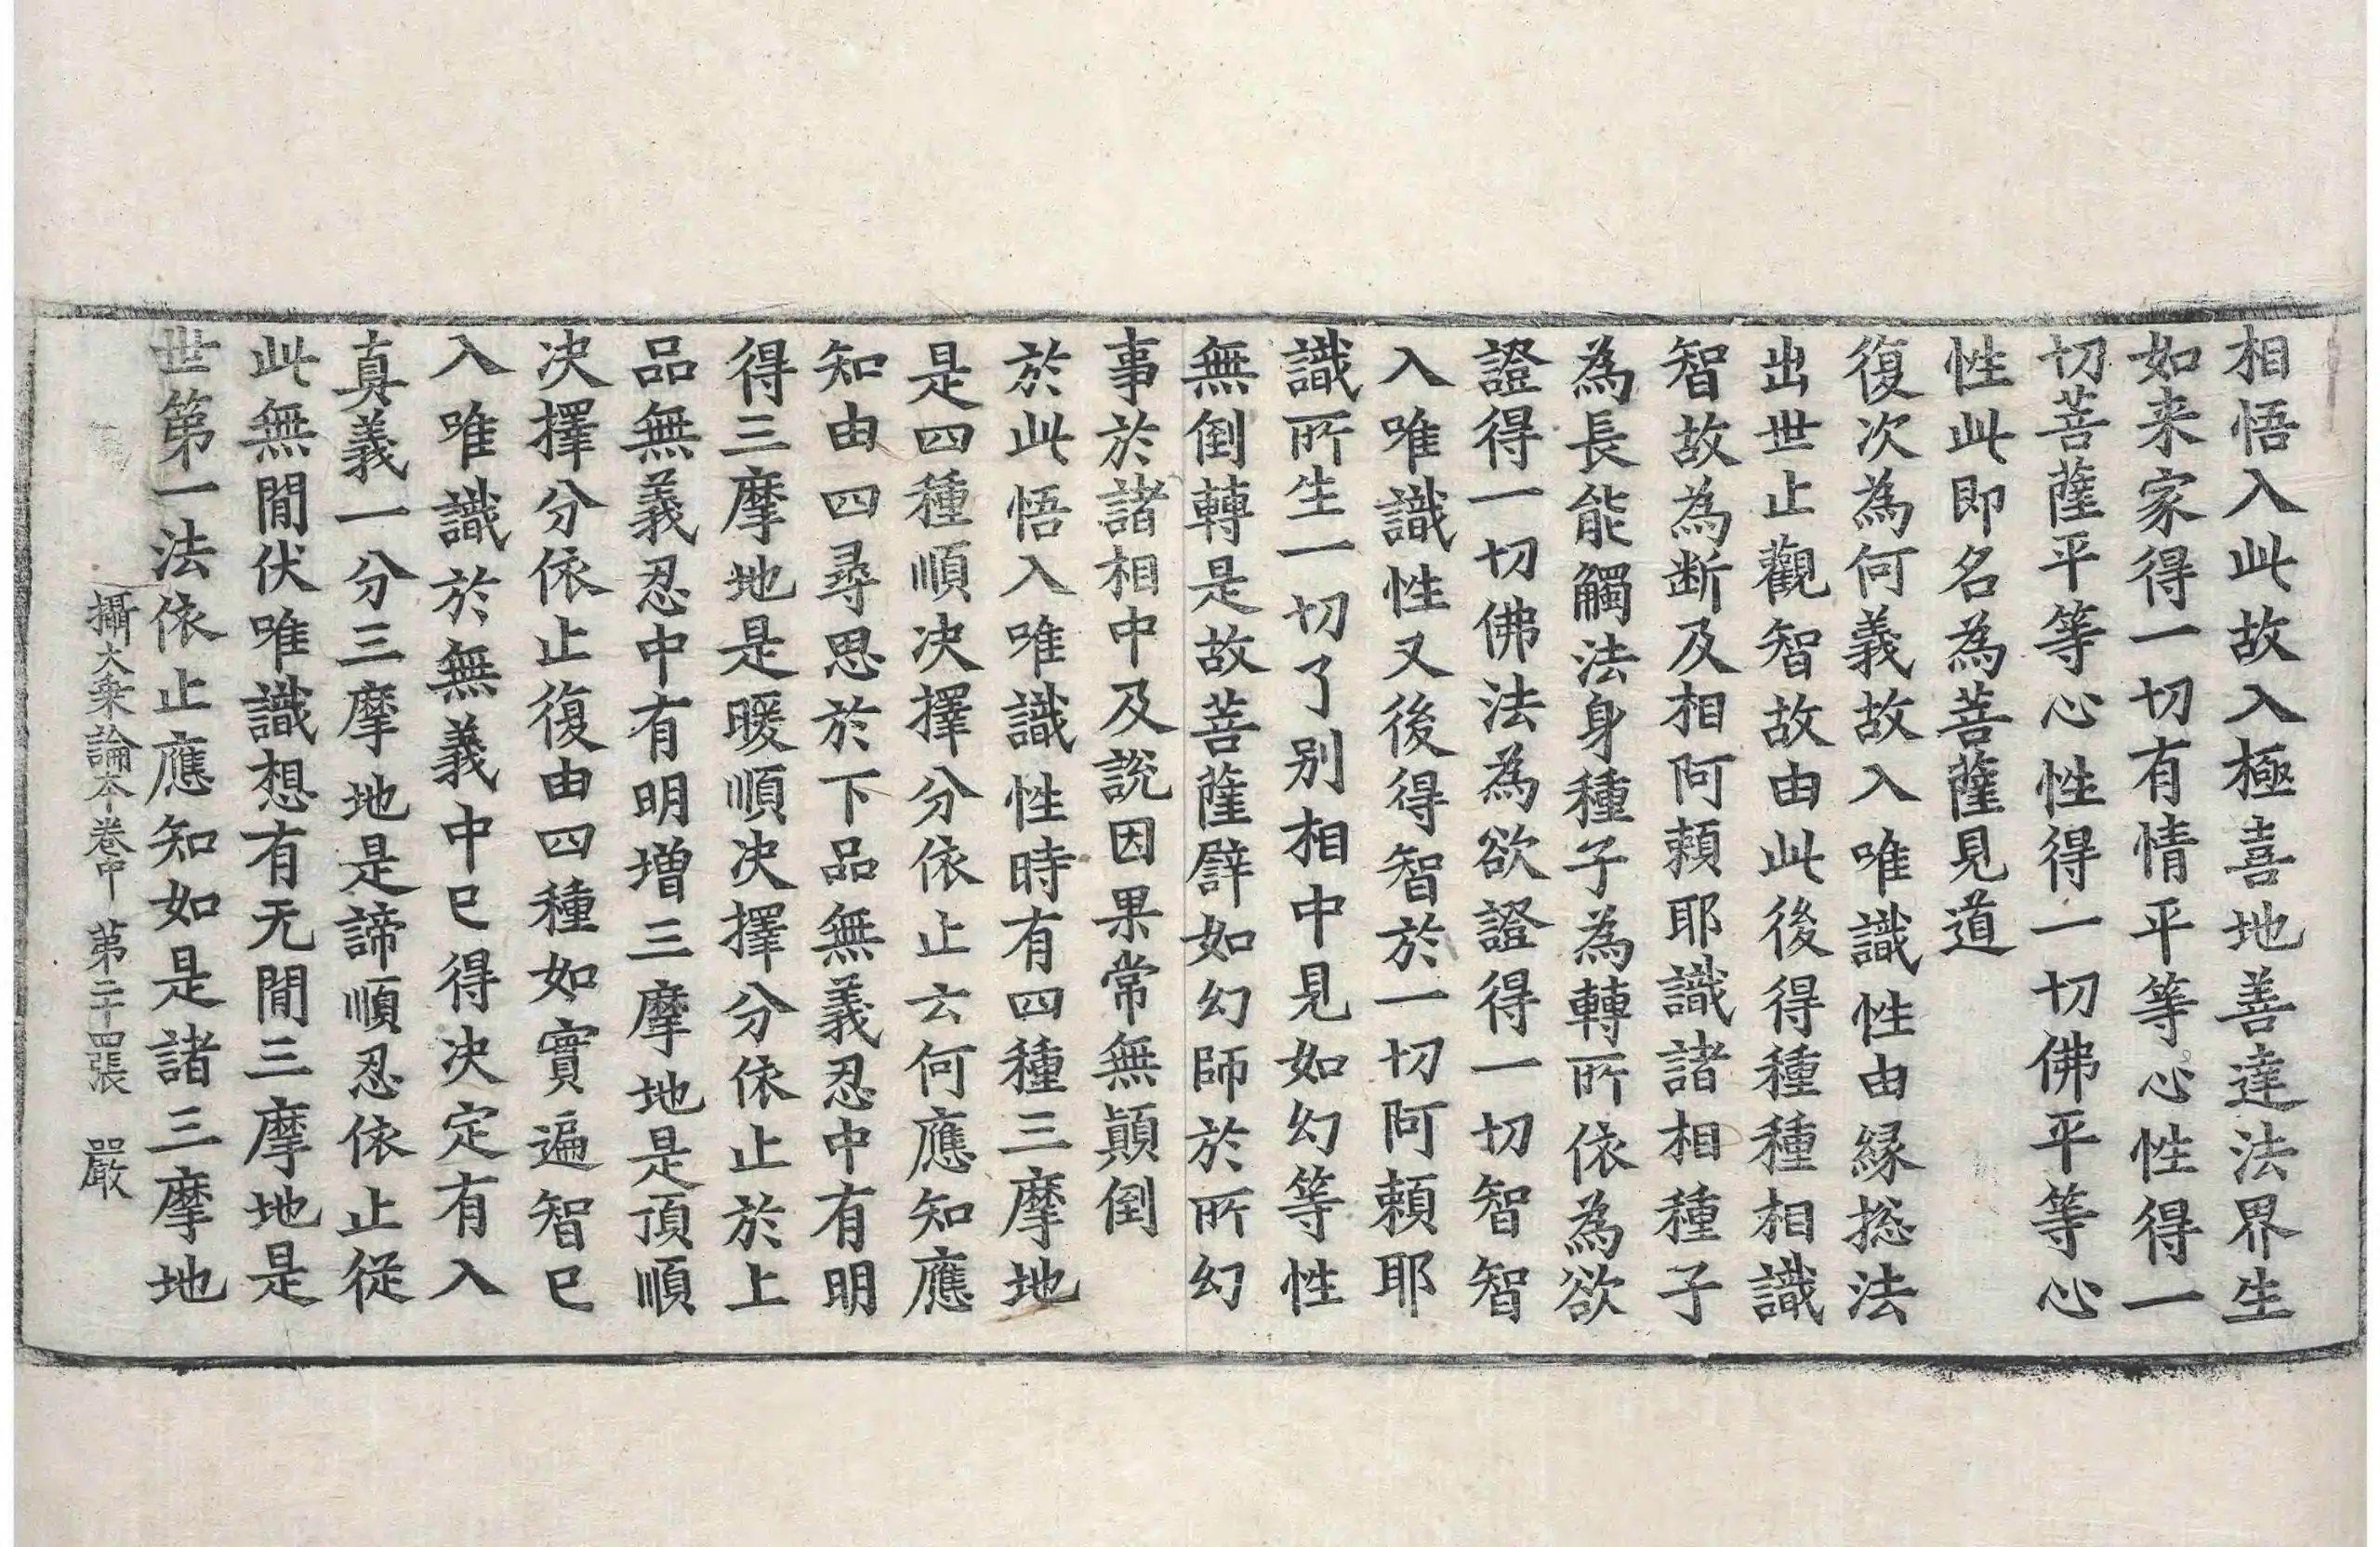 相悟入此故入極喜地善達法界生
如来家得一切有情平等心性得一
切菩薩平等心性得一切佛平等心
性此即名為菩薩見道
復次為何義故入唯識性由緣捴法
出世止觀智故由此後得種種相識
智故為断及相阿頼耶識諸相種子
為長能觸法身種子為轉所依為欲
證得一切佛法為欲證得一切智智
入唯識性又後得智於一切阿頼耶
識所生一切了别相中見如幻等性
無倒轉是故菩薩譬如幻師於所幻
事於諸相中及説因果常無顛倒
於此悟入唯識性時有四種三摩地
是四種順决擇分依止云何應知應
知由四尋思於下品無義忍中有明
得三摩地是暖順决擇分依止於上
品無義忍中有明增三摩地是頂順
决擇分依止復由四種如實遍智已
入唯識於無義中已得决定有入
真義一分三摩地是諦順忍依止從
此無間伏唯識想有无間三摩地是
世第一法依止應知如是諸三摩地
攝大乘論本卷中 第二十四張 嚴